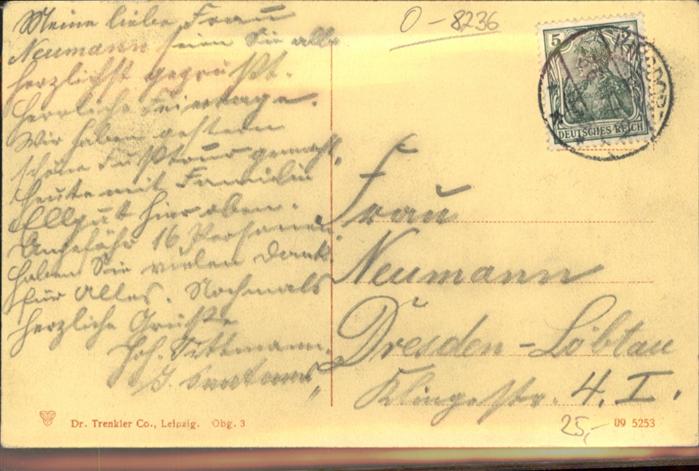 Meine liebe Frau
Neumann seien Sie alle
herzlichst gegrüßt.
herrliche Feiertage.
Wir haben gestern
schöne Fußtour gemacht.
Heute mit Familie
Ellgut hier oben.
Ungefähr 16 Personen
haben Sie vielen Dank
für Alles. Nochmals
herzliche Grüße
Joh. Dittmann.
O-8236
5
DEUTSCHES REICH
Frau
Neumann
Dresden-Löbtau
Klingestr. 4. I.
25,-
Dr. Trenkler Co., Leipzig. Obg. 3
09 5253